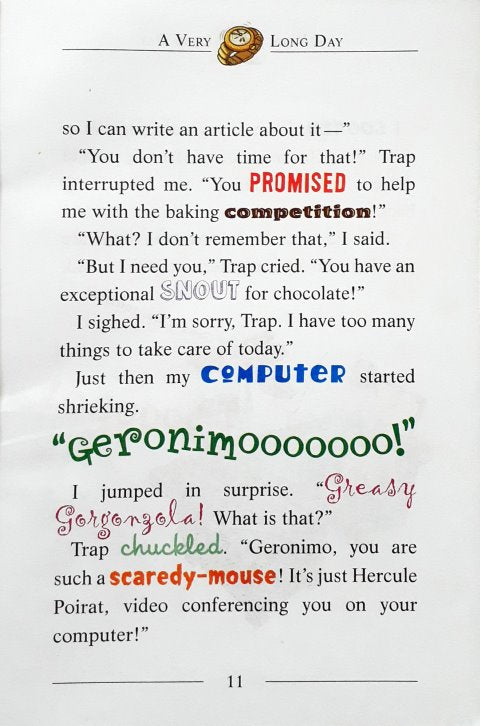 A Very Long Day
so I can write an article about it—”
“You don’t have time for that!” Trap
interrupted me. “You PROMISED to help
me with the baking competition!”
“What? I don’t remember that,” I said.
“But I need you,” Trap cried. “You have an
exceptional SNOUT for chocolate!”
I sighed. “I’m sorry, Trap. I have too many
things to take care of today.”
Just then my COMPUTER started
shrieking.
“Geronimooooooo!”
I jumped in surprise. “Greasy
Gorgonzola! What is that?”
Trap chuckled. “Geronimo, you are
such a scaredy-mouse! It’s just Hercule
Poirat, video conferencing you on your
computer!”
11